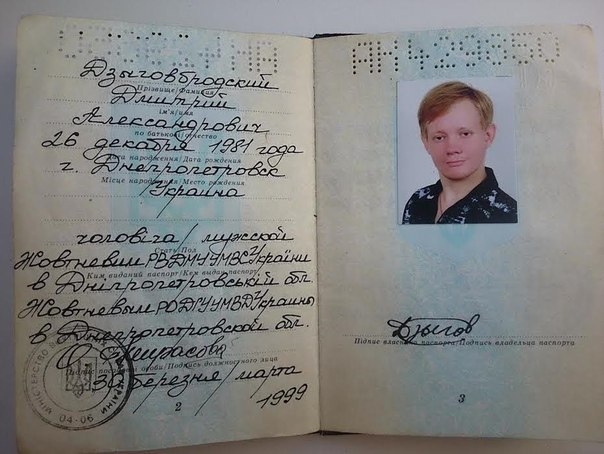 Дзыговбродский
Прізвище/Фамилия
Дмитрий
ім'я/имя
Александрович
по батькові/отчество
26 декабря 1981 года
Дата народження/Дата рождения
г. Днепропетровск
Місце народження/Место рождения
Украина
чоловіча/мужской
Стать/Пол
Жовтневим РВДМУУМВС України
Ким виданий паспорт/Кем выдан паспорт
в Дніпропетровській обл.
Жовтневым РОДМУУМВД Украины
в Днепропетровской обл.
Підпис посадової особи/Подпись должностного лица
30 березня/марта
1999
МІНІСТЕРСТВО УКРАЇНИ
04-06
2
АН429850
Дзыгов
Підпис власника паспорта/Подпись владельца паспорта
3